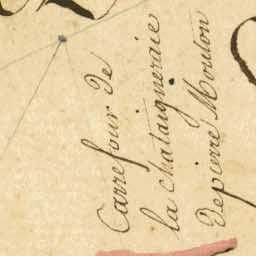 Carrefour de
la chataigneraie
de pierre Mouton